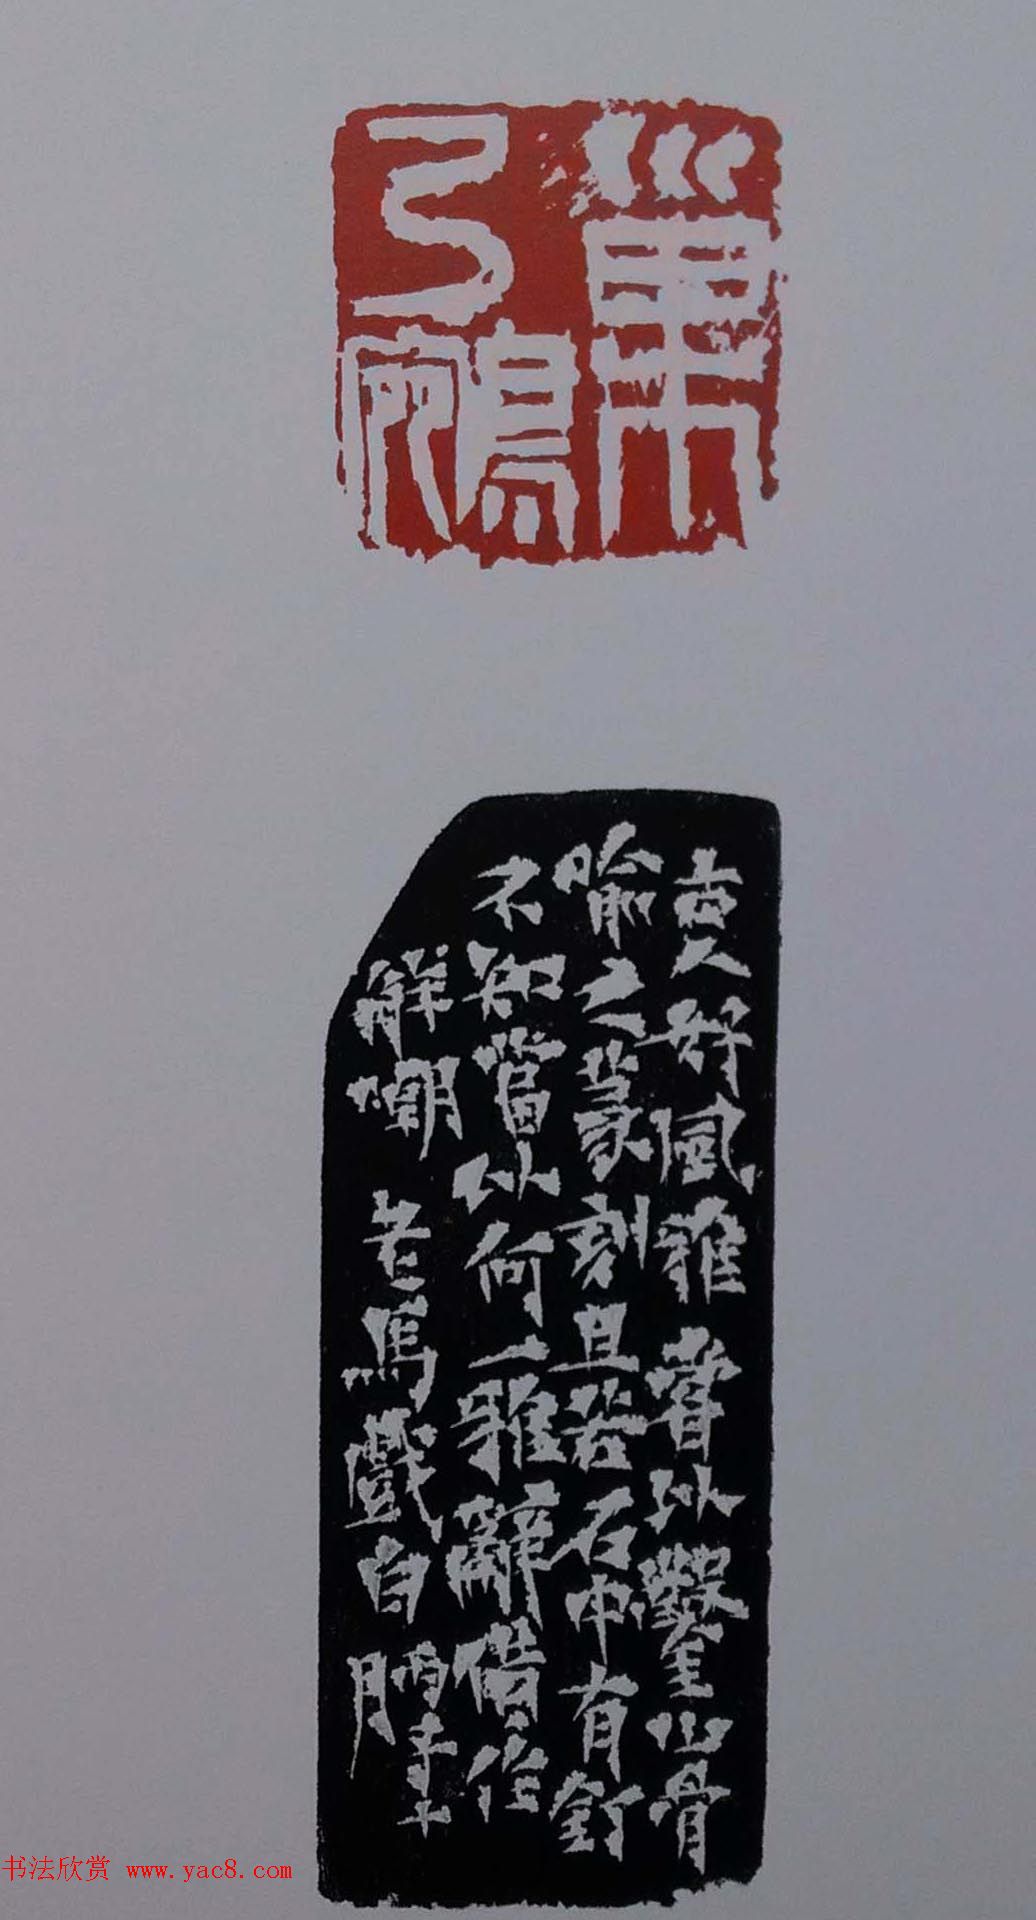 巢
古人好風雅嘗以鑿山骨
喻之篆刻且若石中有釘
不知當以何一雅辭借作
解嘲 老馬戲白 丙子十月
书法欣赏 www.yac8.com